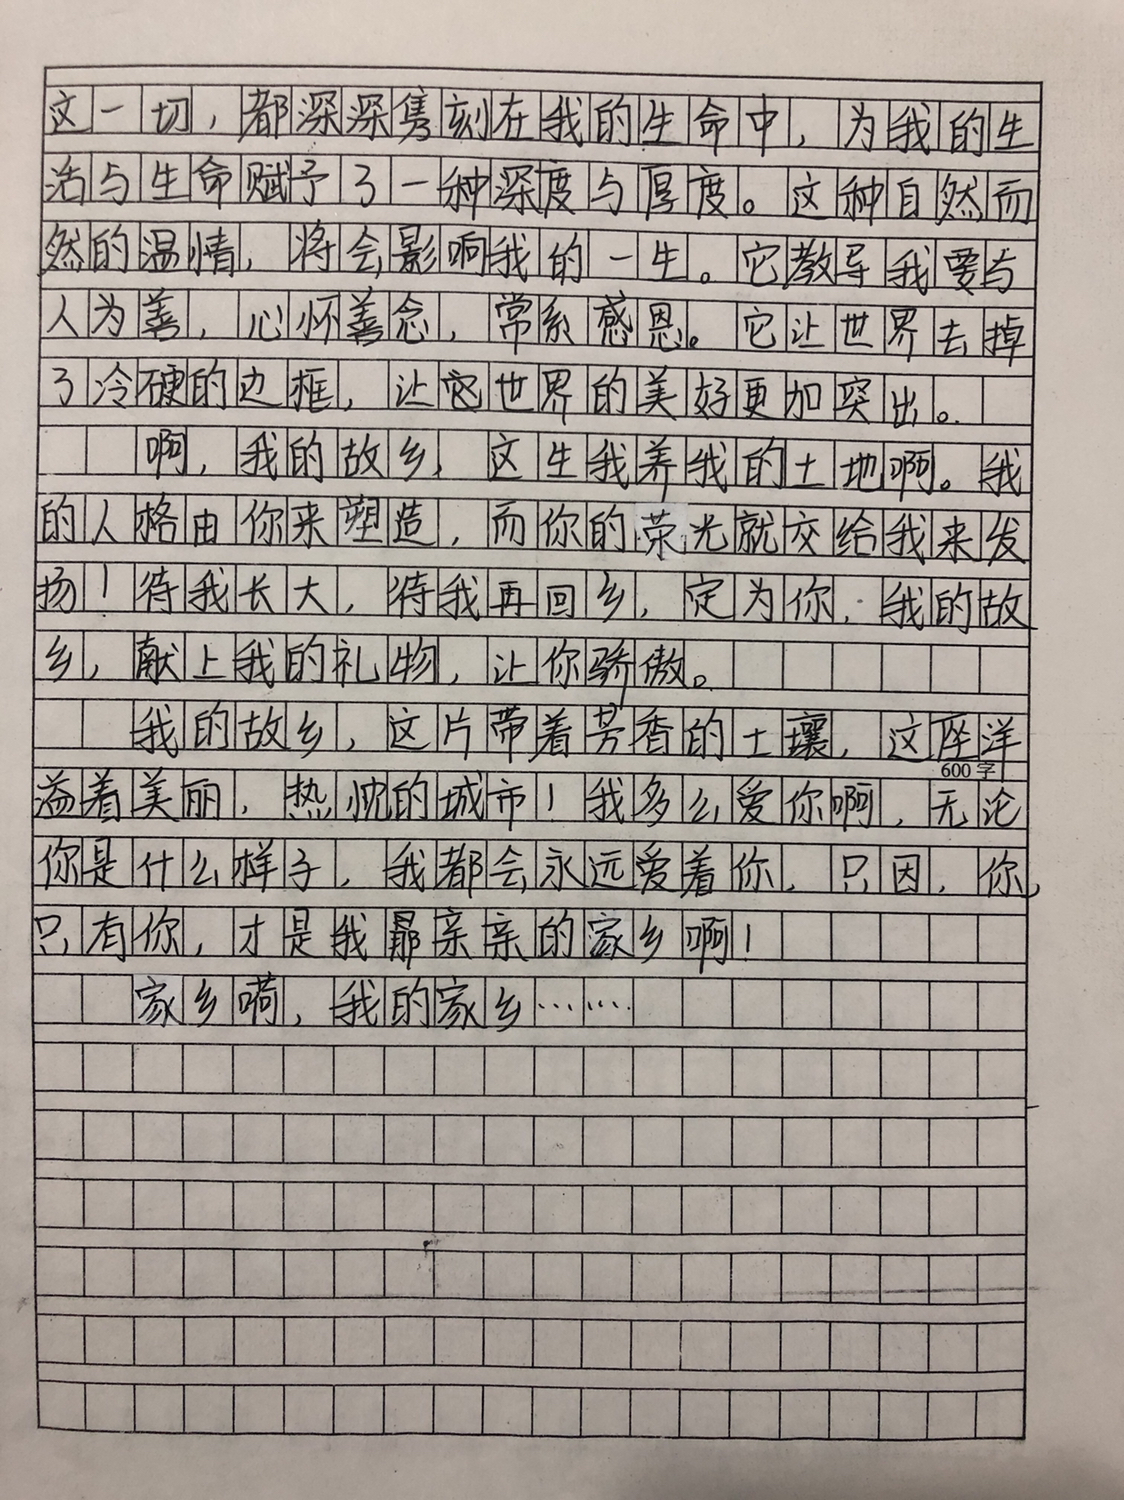 这一切，都深深隽刻在我的生命中，为我的生
活与生命赋予了一种深度与厚度。这种自然而
然的温情，将会影响我的一生。它教导我要与
人为善，心怀善念，常系感恩。它让世界去掉
了冷硬的边框，让世界的美好更加突出。
啊，我的故乡，这生我养我的土地啊。我
的人格由你来塑造，而你的荣光就交给我来发
扬！待我长大，待我再回乡，定为你，我的故
乡，献上我的礼物，让你骄傲。
我的故乡，这片带着芳香的土壤，这座洋
600字
溢着美丽，热忱的城市！我多么爱你啊，无论
你是什么样子，我都会永远爱着你，只因，你，
只有你，才是我最亲亲的家乡啊！
家乡啊，我的家乡……